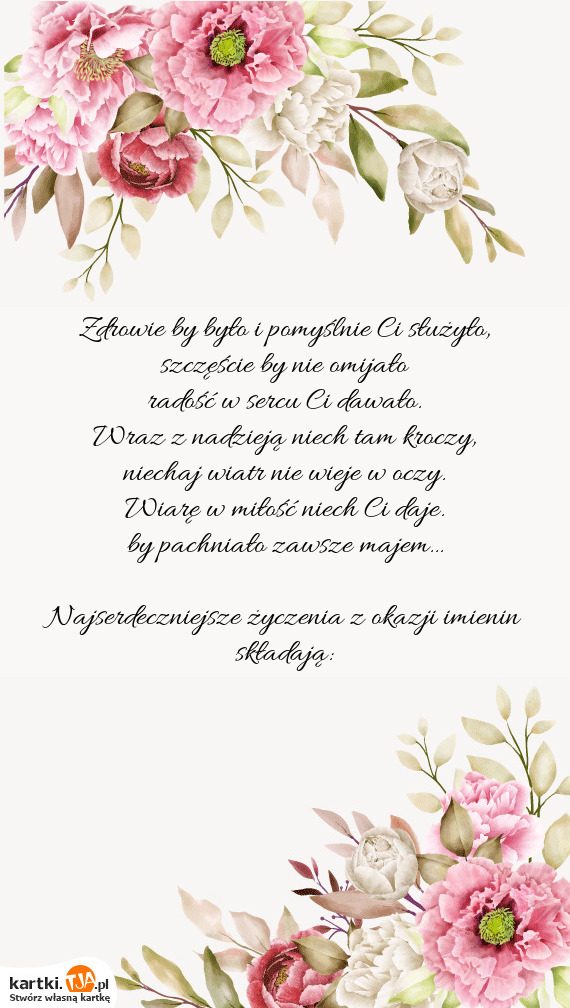 Zdrowie by było i pomyślnie Ci służyło,
szczęście by nie omijało
radość w sercu Ci dawało.
Wraz z nadzieją niech tam kroczy,
niechaj wiatr nie wieje w oczy.
Wiarę w miłość niech Ci daje.
by pachniało zawsze majem...
Najserdeczniejsze życzenia z okazji imienin
składają:
kartki.TJA.pl
Stwórz własną kartkę